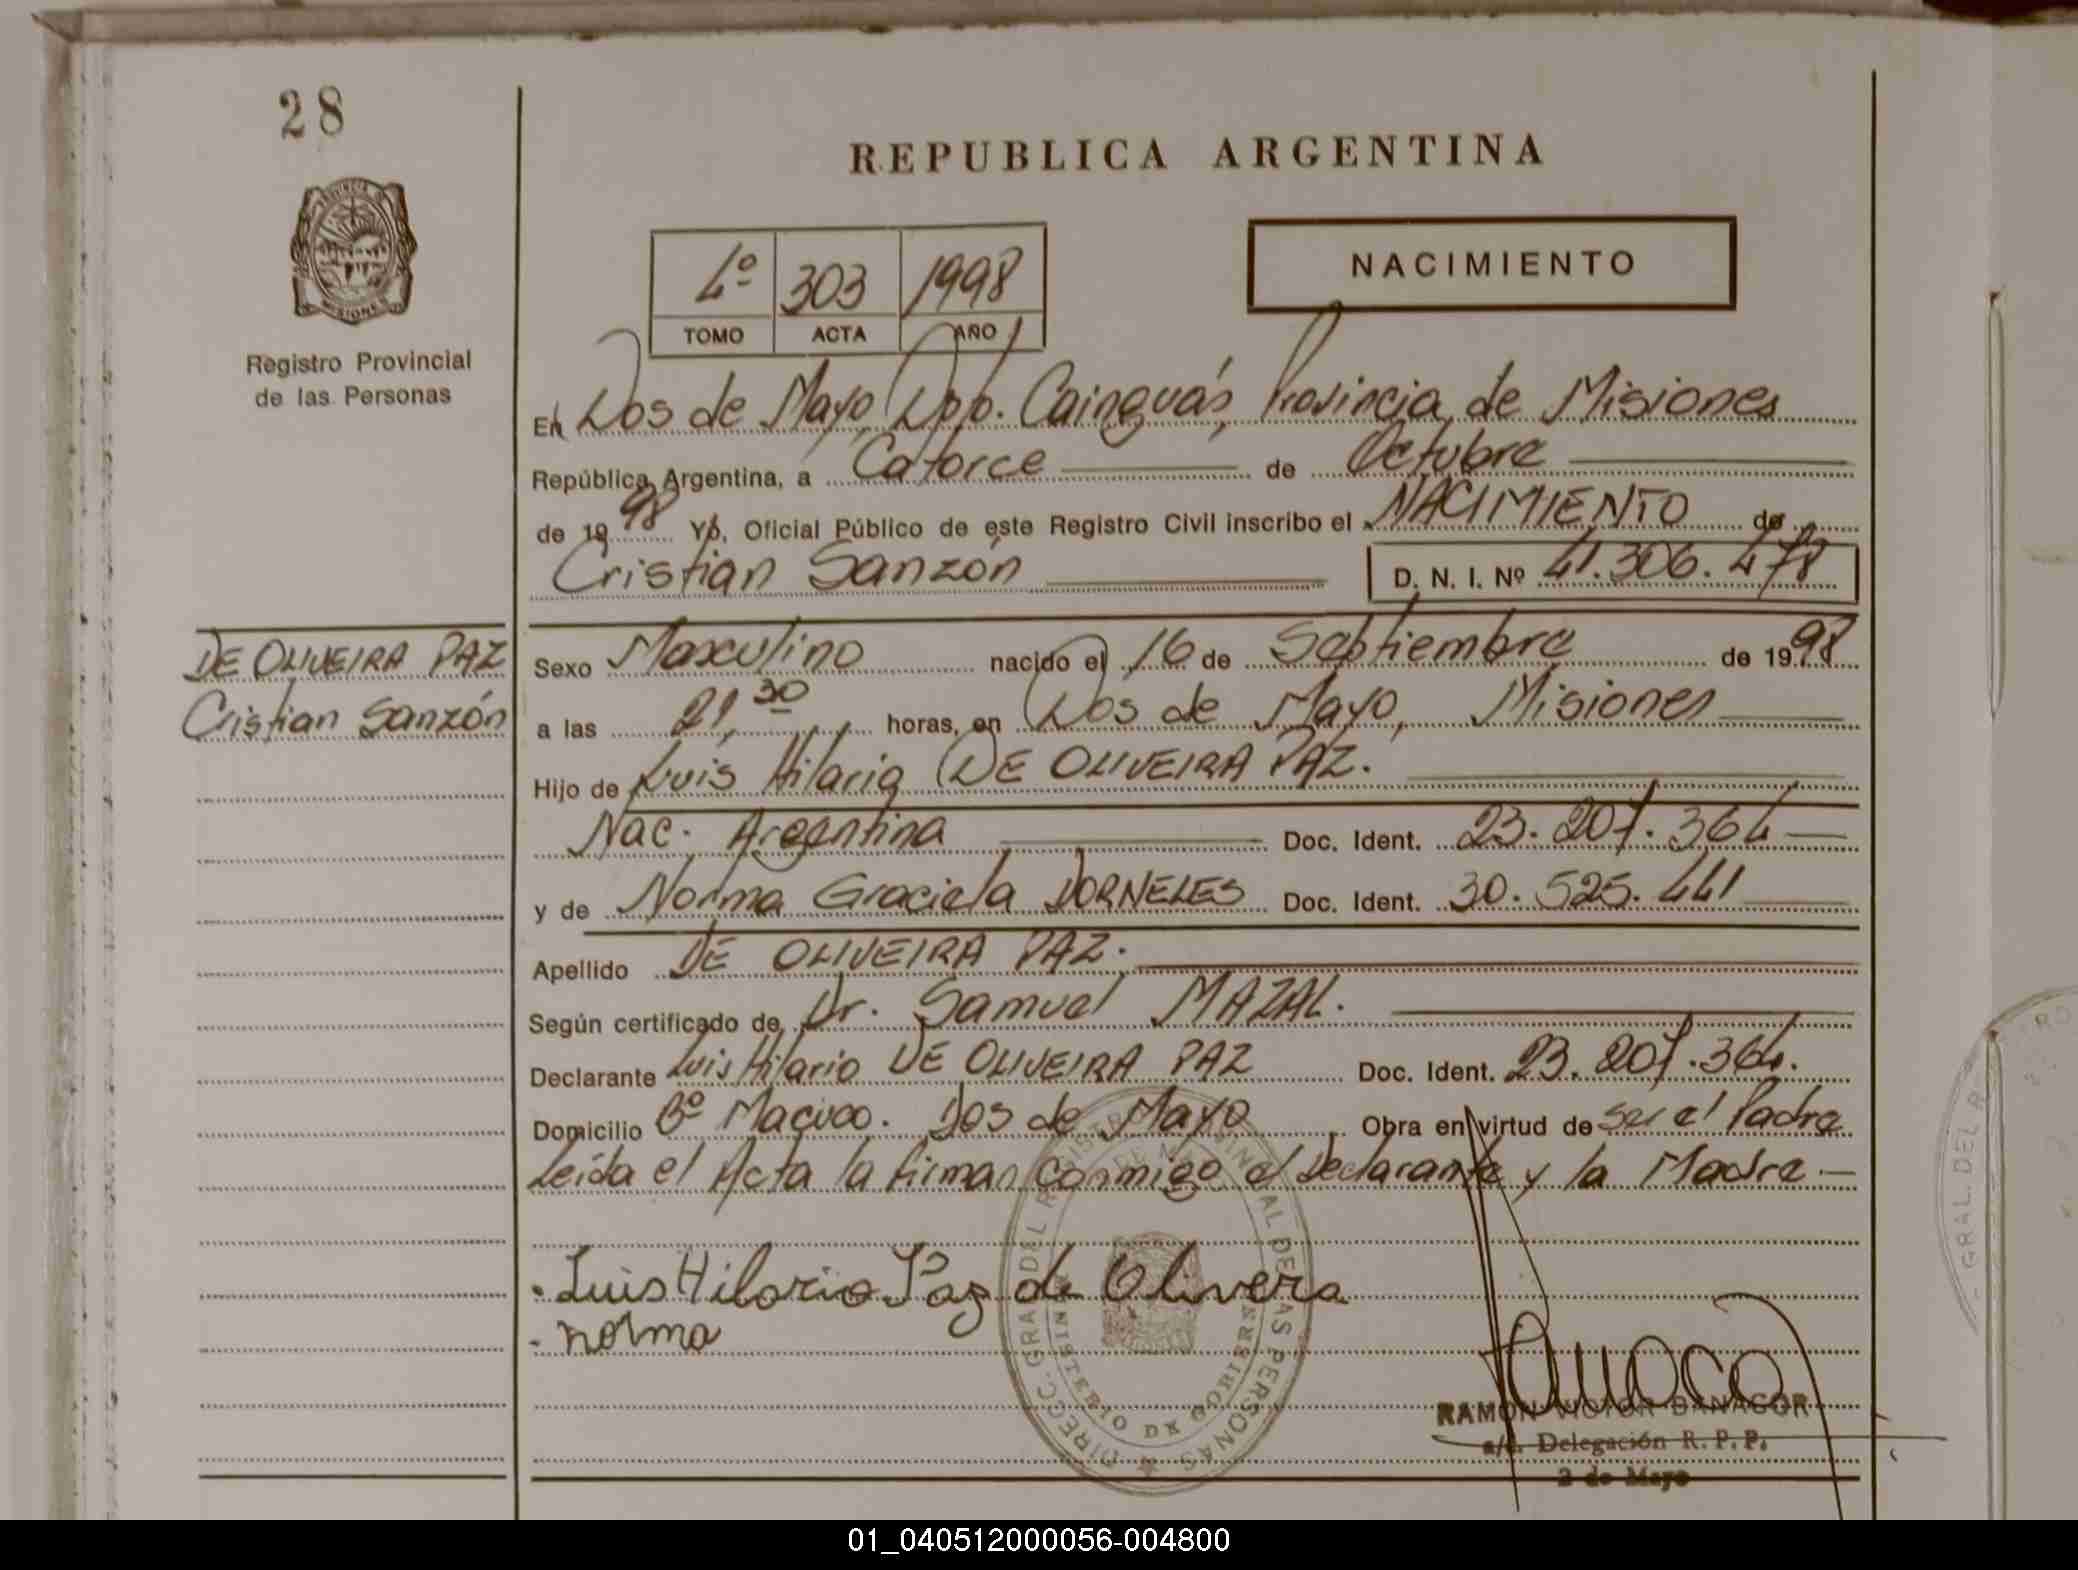 28
REPUBLICA ARGENTINA
PROVINCIA DE
MISIONES
Registro Provincial
de las Personas
4º 303 1998
TOMO ACTA AÑO
NACIMIENTO
En Dos de Mayo, Dpto. Cainguás, Provincia de Misiones
República Argentina, a Catorce de Octubre
de 1998 Yo, Oficial Público de este Registro Civil inscribo el NACIMIENTO de
Cristian Sanzón D. N. I. Nº 41.306.478
DE OLIVEIRA PAZ
Cristian Sanzón
Sexo Masculino nacido el 16 de Septiembre de 1998
a las 21,30 horas, en Dos de Mayo, Misiones
Hijo de Luis Hilario DE OLIVEIRA PAZ.
Nac. Argentina Doc. Ident. 23.207.364
y de Norma Graciela DORNELES Doc. Ident. 30.525.441
Apellido DE OLIVEIRA PAZ.
Según certificado de Dr. Samuel MAZAL.
Declarante Luis Hilario DE OLIVEIRA PAZ Doc. Ident. 23.207.364.
Domicilio Bº Macuco. Dos de Mayo Obra en virtud de ser el Padre
Leída el Acta la firman conmigo el Declarante y la Madre
Luis Hilario Paz de Olivera
Norma
DIRECC. GRAL. DEL REGISTRO PROVINCIAL DE LAS PERSONAS
MINISTERIO DE GOBIERNO
RAMON VICTOR BANACOR
a/c. Delegación R. P. P.
2 de Mayo
GRAL. DEL R
01_040512000056-004800